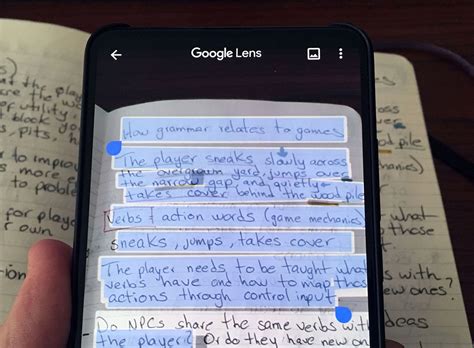 Google Lens
How grammar relates to games
The player sneaks slowly across
the overgrown yard, jumps over
the narrow gap, and quietly
takes cover behind the wood pile
Verbs & action words (game mechanics)
sneaks, jumps, takes cover
The player needs to be taught what
verbs have and how to map those
actions through control input
Do NPCs share the same verbs with
the player? Or do they have new on
s)
to improv
s more
to proble
for playe
r own
pile
mechanics)
those
with?
new ones?
deas